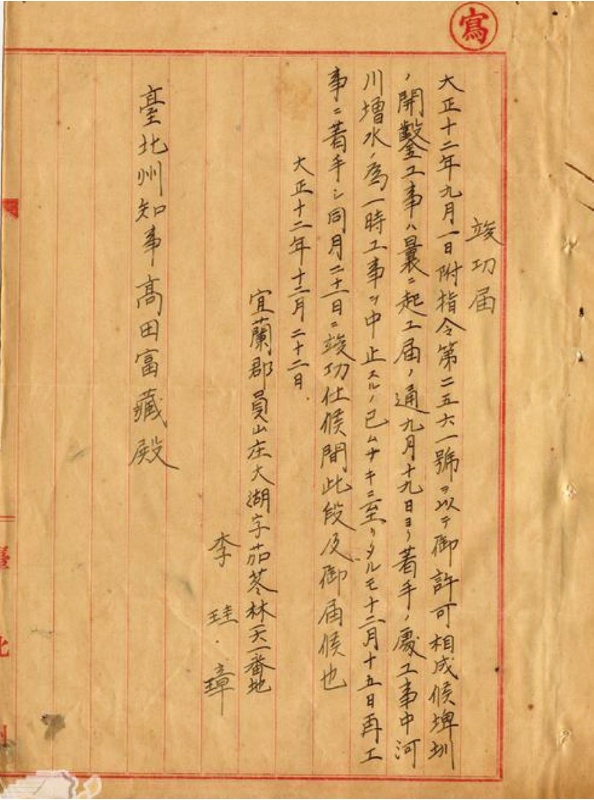 寫
竣功届
大正十二年九月一日附指令第二五六一號ヲ以テ御許可相成候埤圳
ノ開鑿工事ハ曩ニ起工届ノ通九月十九日ヨリ着手ノ處工事中河
川増水ノ為一時工事ヲ中止スルノ已ムナキニ至リタルモ十二月十五日再工
事ニ着手シ同月二十一日ニ竣功仕候間此段及御届候也
大正十二年十二月二十二日
宜蘭郡員山庄大湖字茄苳林 番地
李珪璋
臺北州知事高田富藏殿
臺北州